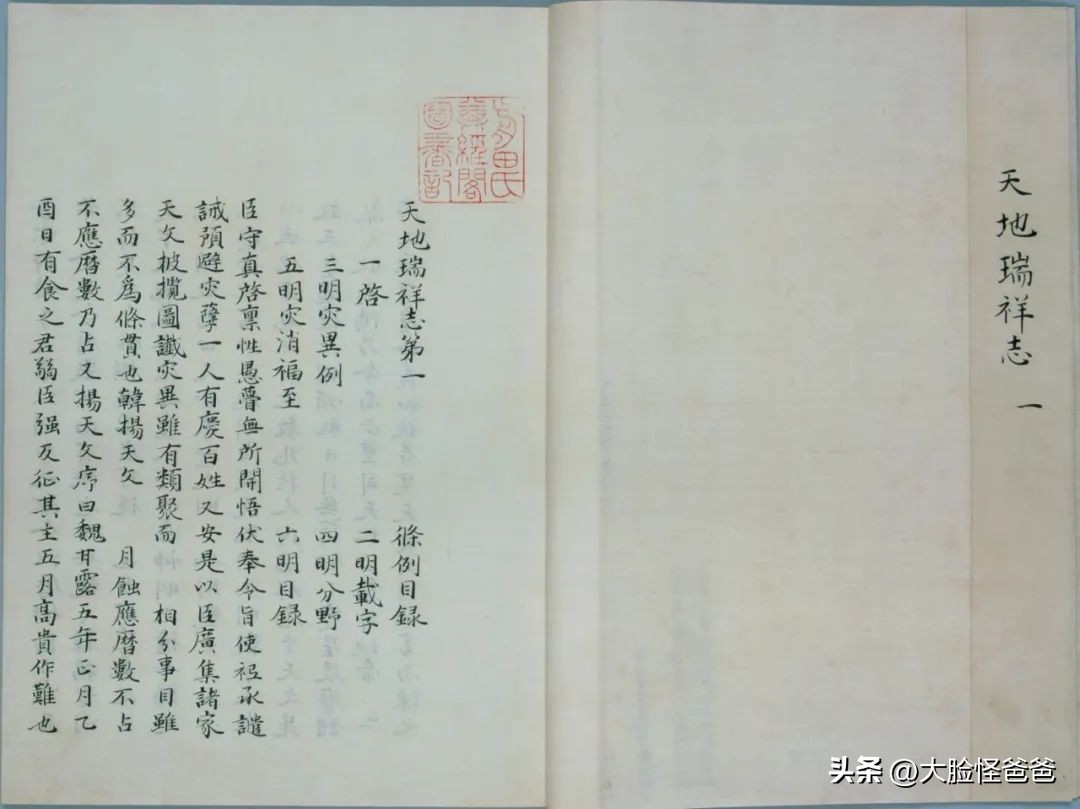 天地瑞祥志 一
天地瑞祥志第一 條例目録
一啓 二明載字
三明灾異例 四明分野
五明灾消福至 六明目録
臣守真啓禀性愚瞢無所開悟伏奉令旨使祗承譴
誡預避灾孽一人有慶百姓乂安是以臣廣集諸家
天文披攬圖讖灾異雖有類聚而相分事目雖
多而不爲條貫也韓揚天文 月蝕應曆數不占
不應曆數乃占又揚天文序曰魏甘露五年正月乙
酉日有食之君弱臣强反征其主五月高貴作難也
尊經閣
圖書記
头条 @大脸怪爸爸